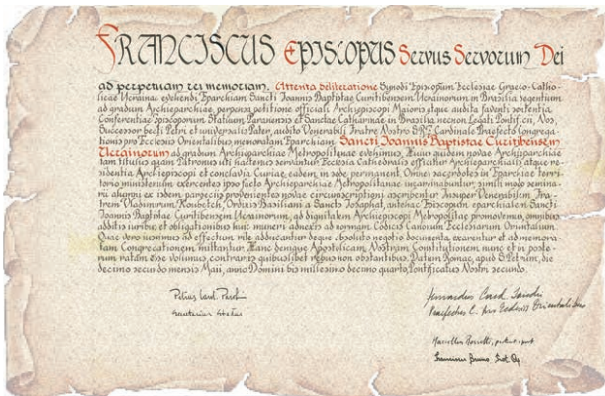 FRANCISCUS EPISCOPUS Servus Servorum Dei
ad perpetuam rei memoriam. Attenta deliberatione Synodi Episcoporum Ecclesiae Graeco-Catho-
licae Ucrainae extollendi Eparchiam Sancti Ioannis Baptistae Curitibensem Ucrainorum in Brasilia degentium
ad gradum Archieparchiae, perpensa petitione officiali Archiepiscopi Maioris itque audita faventi sententia
Conferentiae Episcoporum Statuum Paranensis et Sanctae Catharinae in Brasilia necnon Legati Pontificii, Nos,
Successor beati Petri et universalis Pater, audito Venerabili Fratre Nostro S.R.E. Cardinale Praefecto Congrega-
tionis pro Ecclesiis Orientalibus, memoratam Eparchiam Sancti Ioannis Baptistae Curitibensem
Ucrainorum ad gradum Archieparchiae Metropolitanae evehimus. Huius quidem novae Archieparchiae
tam titulus quam Patronus uti hactenus servantur. Ecclesia Cathedralis efficitur Archieparchialis atque re-
sidentia Archiepiscopi et conclavia Curiae, eadem in sede permanent. Omnes sacerdotes in Eparchiae terri-
torio ministerium exercentes ipso facto Archieparchiae Metropolitanae incardinabuntur; simili modo semina-
rii alumni ex isdem paroeciis provenientes novae circumscriptioni ascribentur. Insuper Venerabilem Fra-
trem Vladimirum Koubetch, Ordinis Basiliani a Sancto Iosaphat, antehac Episcopum eparchialem Sancti
Ioannis Baptistae Curitibensem Ucrainorum, ad dignitatem Archiepiscopi Metropolitae promovemus, omnibus
additis iuribus et obligationibus huic muneri adnexis ad normam Codicis Canonum Ecclesiarum Orientalium.
Quae vero iussimus ad effectum rite adducantur deque absoluto negotio documenta exarentur et ad memora-
tam Congregationem mittantur. Hanc denique Apostolicam Nostram Constitutionem nunc et in poste-
rum ratam esse volumus, contrariis quibuslibet rebus non obstantibus. Datum Romae, apud S. Petrum, die
decimo secundo mensis Maii, anno Domini bis millesimo decimo quarto, Pontificatus Nostri secundo.
Petrus Card. Parolin
Secretarius Status
Leonardus Card. Sandri
Praefectus C. pro Ecclesiis Orientalibus
Marcellus Rossetti, proton. apost.
Franciscus Bruno